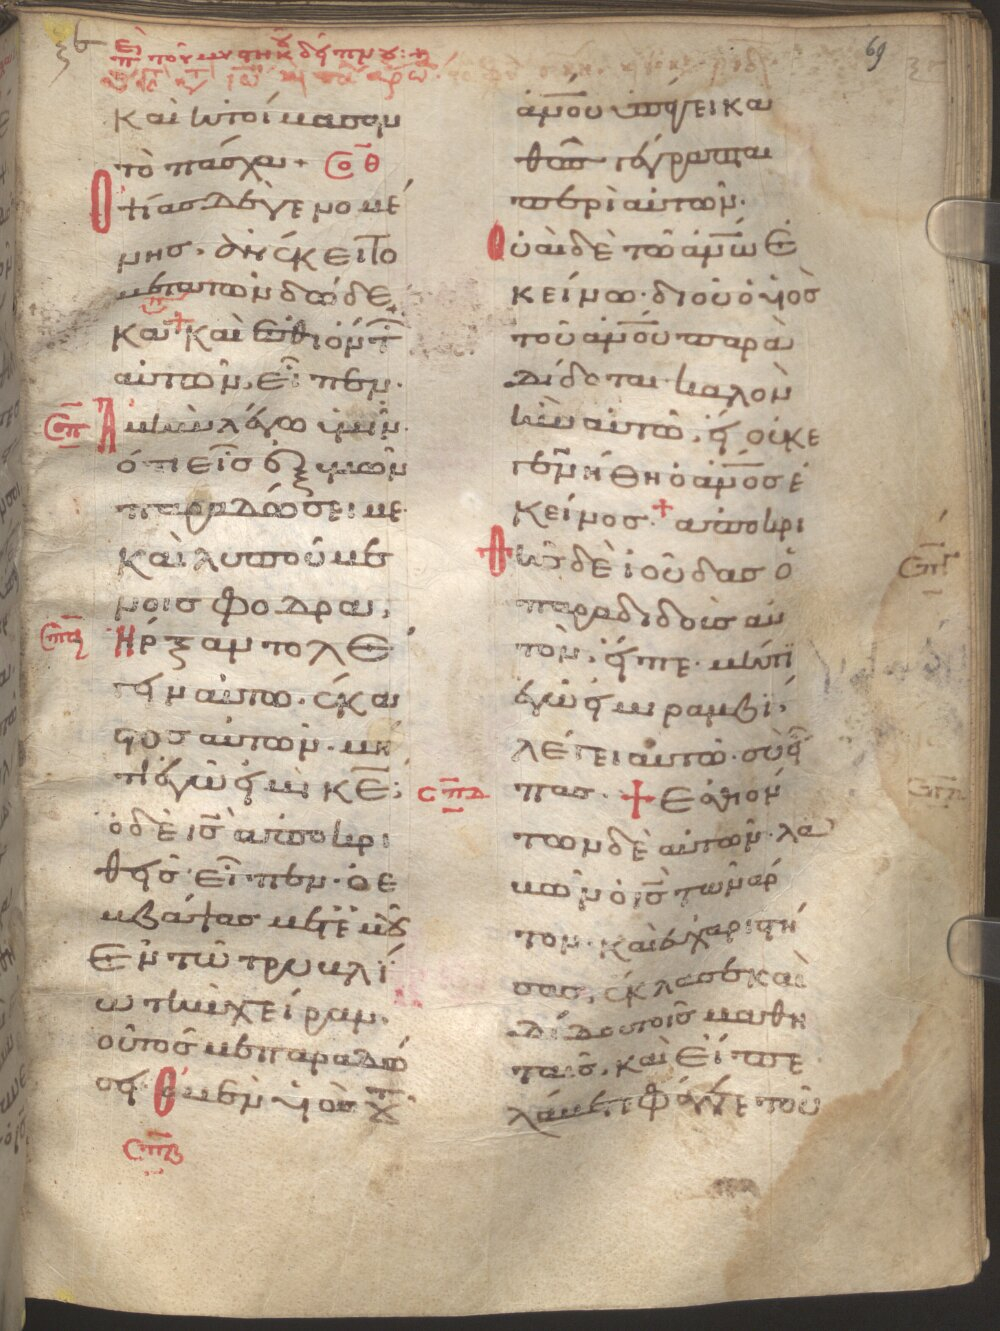 69
καὶ ἡτοίμασαν
τὸ πάσχα + σοθ
Ὀψίας δὲ γενομέ
νης. ἀνέκειτο
μετὰ τῶν δώδε
κα + καὶ ἐσθιόντ
αὐτῶν. εἶπεν.
σπ Ἀμὴν λέγω ὑμῖν.
ὅτι εἷς ἐξ ὑμῶν
παραδώσει με.
καὶ λυπούμε
νοι σφόδρα,
σπα ἤρξαντο λέ
γειν αὐτῶ. ἕκα
στος αὐτῶν. μή
τι ἐγώ εἰμι κε;
ὁ δὲ ις ἀποκρι
θεὶς εἶπεν. ὁ ἐ
μβάψας μετ ἐμοῦ
ἐν τῶ τρυβλί
ω τὴν χεῖραν.
οὗτός με παραδώ
σει. ὁ μὲν υἱὸς τ
σπβ
ανου ὑπάγει κα
θὼς γέγραπται
περὶ αὐτοῦ.
Οὐαὶ δὲ τῶ ανω ἐ
κείνω. δι οὗ ὁ υἱὸς
τοῦ ανου παρα
δίδοται. καλὸν
ἦν αὐτῶ. εἰ οὐκ ἐ
γεννήθη ὁ ανος ἐ
κεῖνος. + ἀποκρι
θεὶς δὲ ἰούδας ὁ
παραδιδοὺς αὐ
τὸν. εἶπε. μήτι
ἐγώ εἰμι ραββί;
λέγει αὐτῶ. σὺ εἶ
πας. + σπδ Ἐσθιόν
των δὲ αὐτῶν. λα
βὼν ὁ ις τὸν ἄρ
τον. καὶ εὐχαριστή
σας, ἔκλασε καὶ
δίδου τοῖς μαθη
ταῖς. καὶ εἶπε
λάβετε φάγετε τοῦ